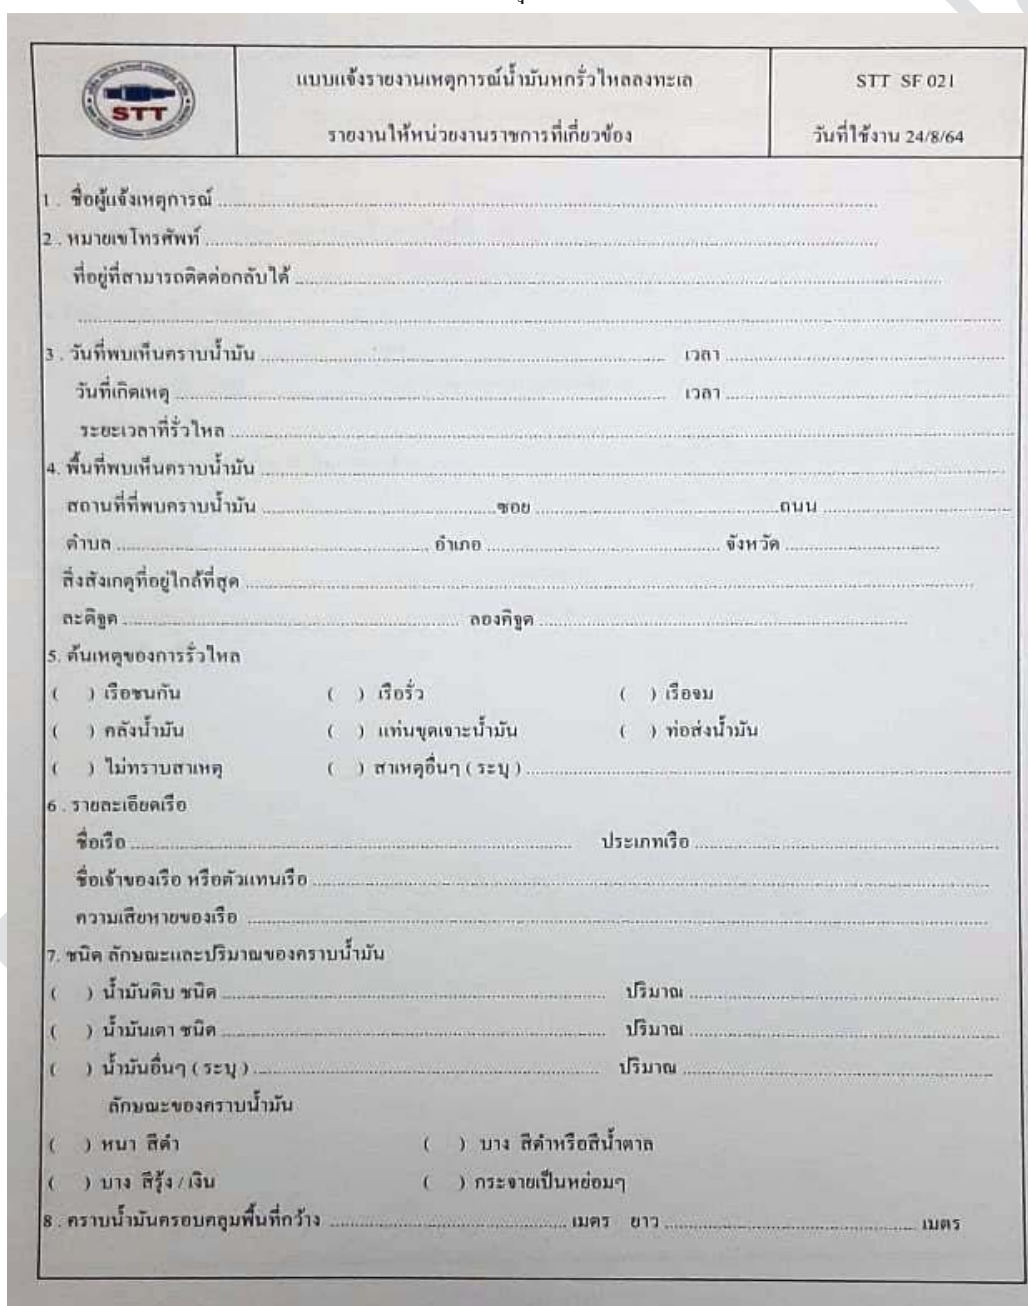 STT
แบบแจ้งรายงานเหตุการณ์น้ำมันหกรั่วไหลลงทะเล
STT SF 021
รายงานให้หน่วยงานราชการที่เกี่ยวข้อง
วันที่ใช้งาน 24/8/64
1 . ชื่อผู้แจ้งเหตุการณ์
2 . หมายเขโทรศัพท์
ที่อยู่ที่สามารถติดต่อกลับได้
3 . วันที่พบเห็นคราบน้ำมัน เวลา
วันที่เกิดเหตุ เวลา
ระยะเวลาที่รั่วไหล
4. พื้นที่พบเห็นคราบน้ำมัน
สถานที่ที่พบคราบน้ำมัน ซอย ถนน
ตำบล อำเภอ จังหวัด
สิ่งสังเกตุที่อยู่ใกล้ที่สุด
ละติจูด ลองติจูด
5. ต้นเหตุของการรั่วไหล
( ) เรือชนกัน ( ) เรือรั่ว ( ) เรือจม
( ) คลังน้ำมัน ( ) แท่นขุดเจาะน้ำมัน ( ) ท่อส่งน้ำมัน
( ) ไม่ทราบสาเหตุ ( ) สาเหตุอื่นๆ ( ระบุ )
6 . รายละเอียดเรือ
ชื่อเรือ ประเภทเรือ
ชื่อเจ้าของเรือ หรือตัวแทนเรือ
ความเสียหายของเรือ
7. ชนิด ลักษณะและปริมาณของคราบน้ำมัน
( ) น้ำมันดิบ ชนิด ปริมาณ
( ) น้ำมันเตา ชนิด ปริมาณ
( ) น้ำมันอื่นๆ ( ระบุ ) ปริมาณ
ลักษณะของคราบน้ำมัน
( ) หนา สีดำ ( ) บาง สีดำหรือสีน้ำตาล
( ) บาง สีรุ้ง / เงิน ( ) กระจายเป็นหย่อมๆ
8 . คราบน้ำมันครอบคลุมพื้นที่กว้าง เมตร ยาว เมตร